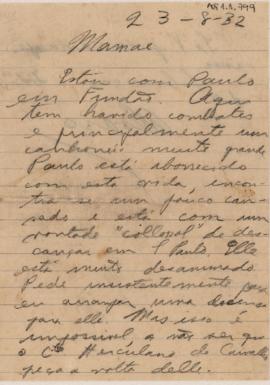 AP 1.1.799
23-8-32
Mamãe
Estou com Paulo
em Fundão. Aqui
tem havido combates
e principalmente um
canhoneio muito grande
Paulo está aborrecido
com esta vida, encon
tra se um pouco can
sado e está com um
vontade "collossal" de des
cançar em S. Paulo. Elle
está muito desanimado
Pede insistentemente para
eu arranjar uma
para elle. Mas isso é
impossivel, a não ser que
o Herculano de Carvalho
peça a volta delle.